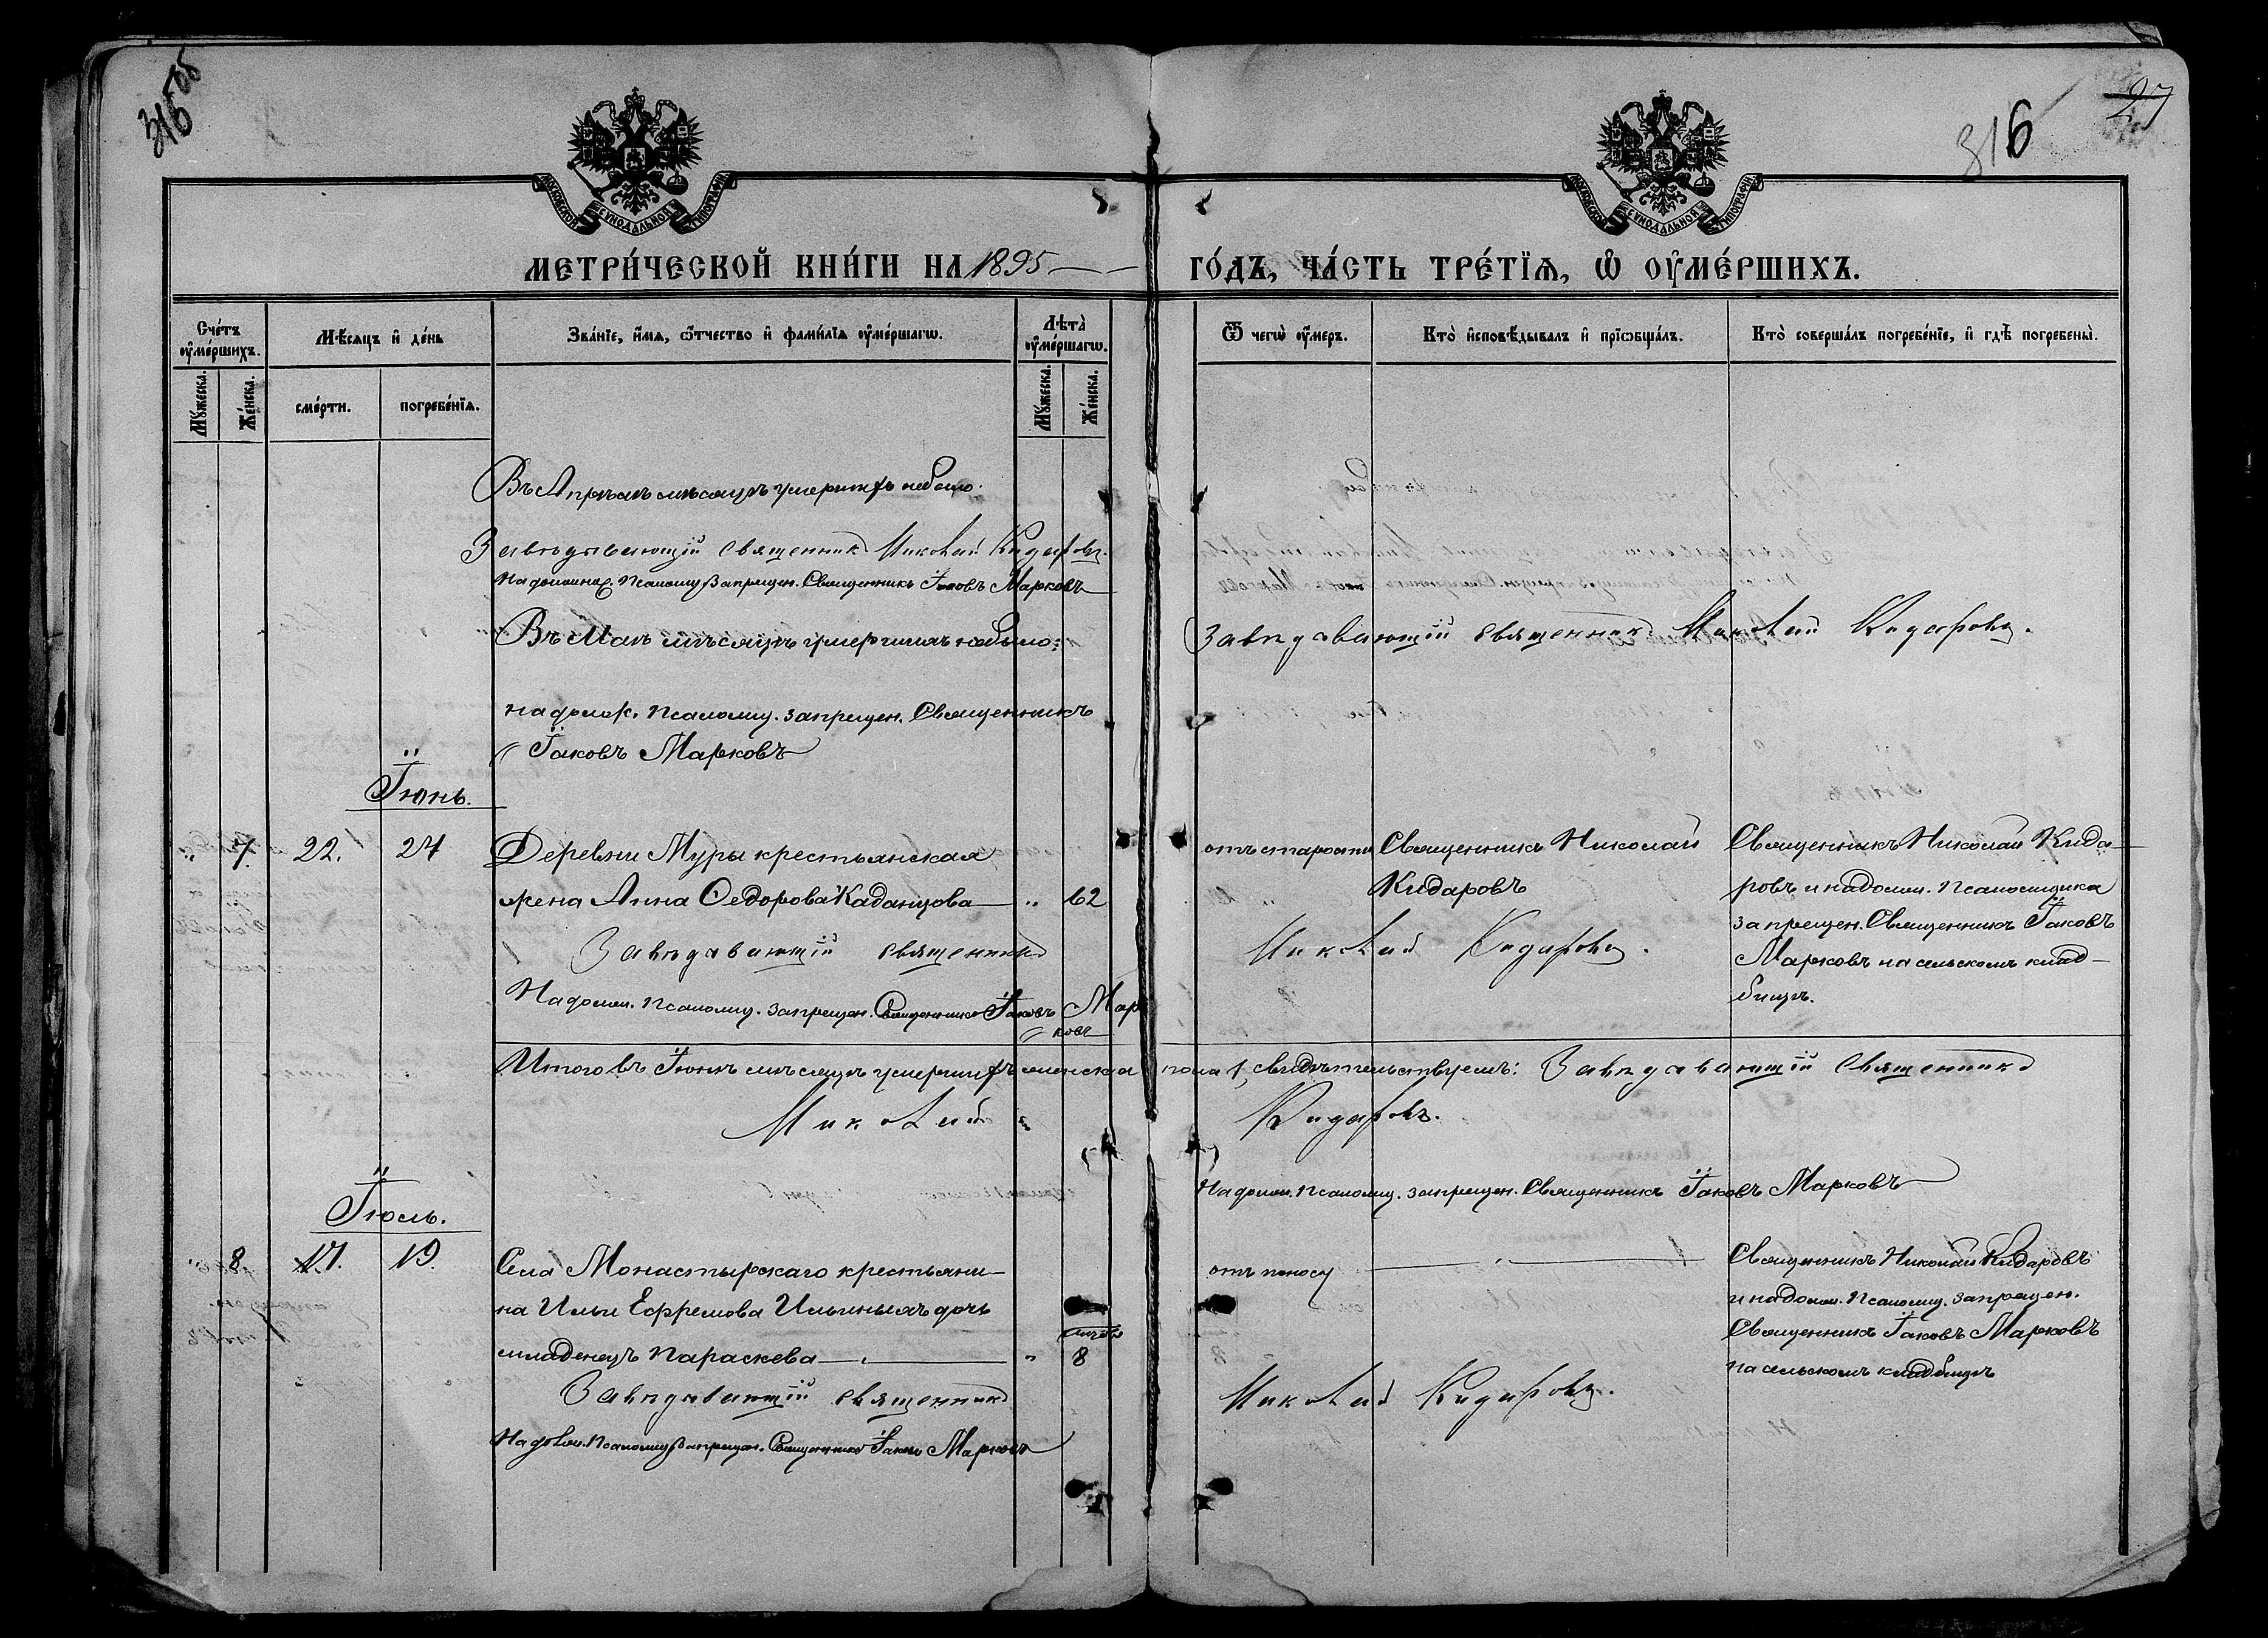 316
316
27
МОСКОВСКОЙ СѴНОДАЛЬНОЙ ТИПОГРАФІИ
МОСКОВСКОЙ СѴНОДАЛЬНОЙ ТИПОГРАФІИ
МЕТРИ́ЧЕСКОЙ КНИ́ГИ НА 1895
ГО́ДЪ, ЧА́СТЬ ТРЕ́ТЇѦ, Ѡ҆ ОУ҆МЕ́РШИХЪ.
Сче́тъ оу҆ме́ршихъ.
Мꙋжеска.
Же́нска.
Мѣ́сѧцъ и҆ де́нь
сме́рти.
погребе́нїѧ.
Зва́нїе, и҆́мѧ, ѻ҆́тчество и҆ фами́лїѧ оу҆ме́ршагѡ.
Лѣ́та оу҆ме́ршагѡ.
Мꙋжеска.
Же́нска.
Ѿ чегѡ̀ оу҆́меръ.
Кто̀ и҆сповѣ́дывалъ и҆ прїѡбща́лъ.
Кто̀ соверша́лъ погребе́нїе, и҆ гдѣ̀ погребены̀.
Въ Апрѣлѣ мѣсяцѣ умершихъ не было.
Завѣдывающій священникъ Николай Кидаровъ.
На должнос. Псаломщ. запрещен. Священникъ Іаковъ Марковъ
Въ Маѣ мѣсяцѣ умершихъ небыло:
Завѣдавающій священникъ Николай Кидаровъ.
на долж. Псаломщ. запрещен. Священникъ
Іаковъ Марковъ
Іюнь.
" 7. 22. 24 Деревни Муры крестьянская
жена Анна Ѳедорова Каданцова " 62
отъ старости
Священникъ Николай
Кидаровъ
Священникъ Николай Кида
ровъ и на долж. Псаломщика
запрещен. Священникъ Іаковъ
Марковъ на сельскомъ клад-
бищѣ.
Завѣдавающій священникъ Николай Кидаровъ.
На долж. Псаломщ. запрещен. Священникъ Іаковъ Мар
ковъ
Итого въ Іюнѣ мѣсяцѣ умершихъ женска пола 1, свидѣтельствуемъ: Завѣдавающій Священникъ
Николай Кидаровъ.
На долж. Псаломщ. запрещен. Священникъ Іаковъ Марковъ
Іюль.
" 8. 17. 19. Села Монастырскаго крестьяни-
на Ильи Ефремова Ильиныхъ дочь
младенецъ Параскева " 8
отъ поносу
Священникъ Николай Кидаровъ
и на долж. Псаломщ. запрещен.
Священникъ Іаковъ Марковъ
на сельскомъ кладбищѣ
Завѣдавающій священникъ Николай Кидаровъ.
На долж. Псаломщ. запрещен. Священникъ Іаковъ Марковъ